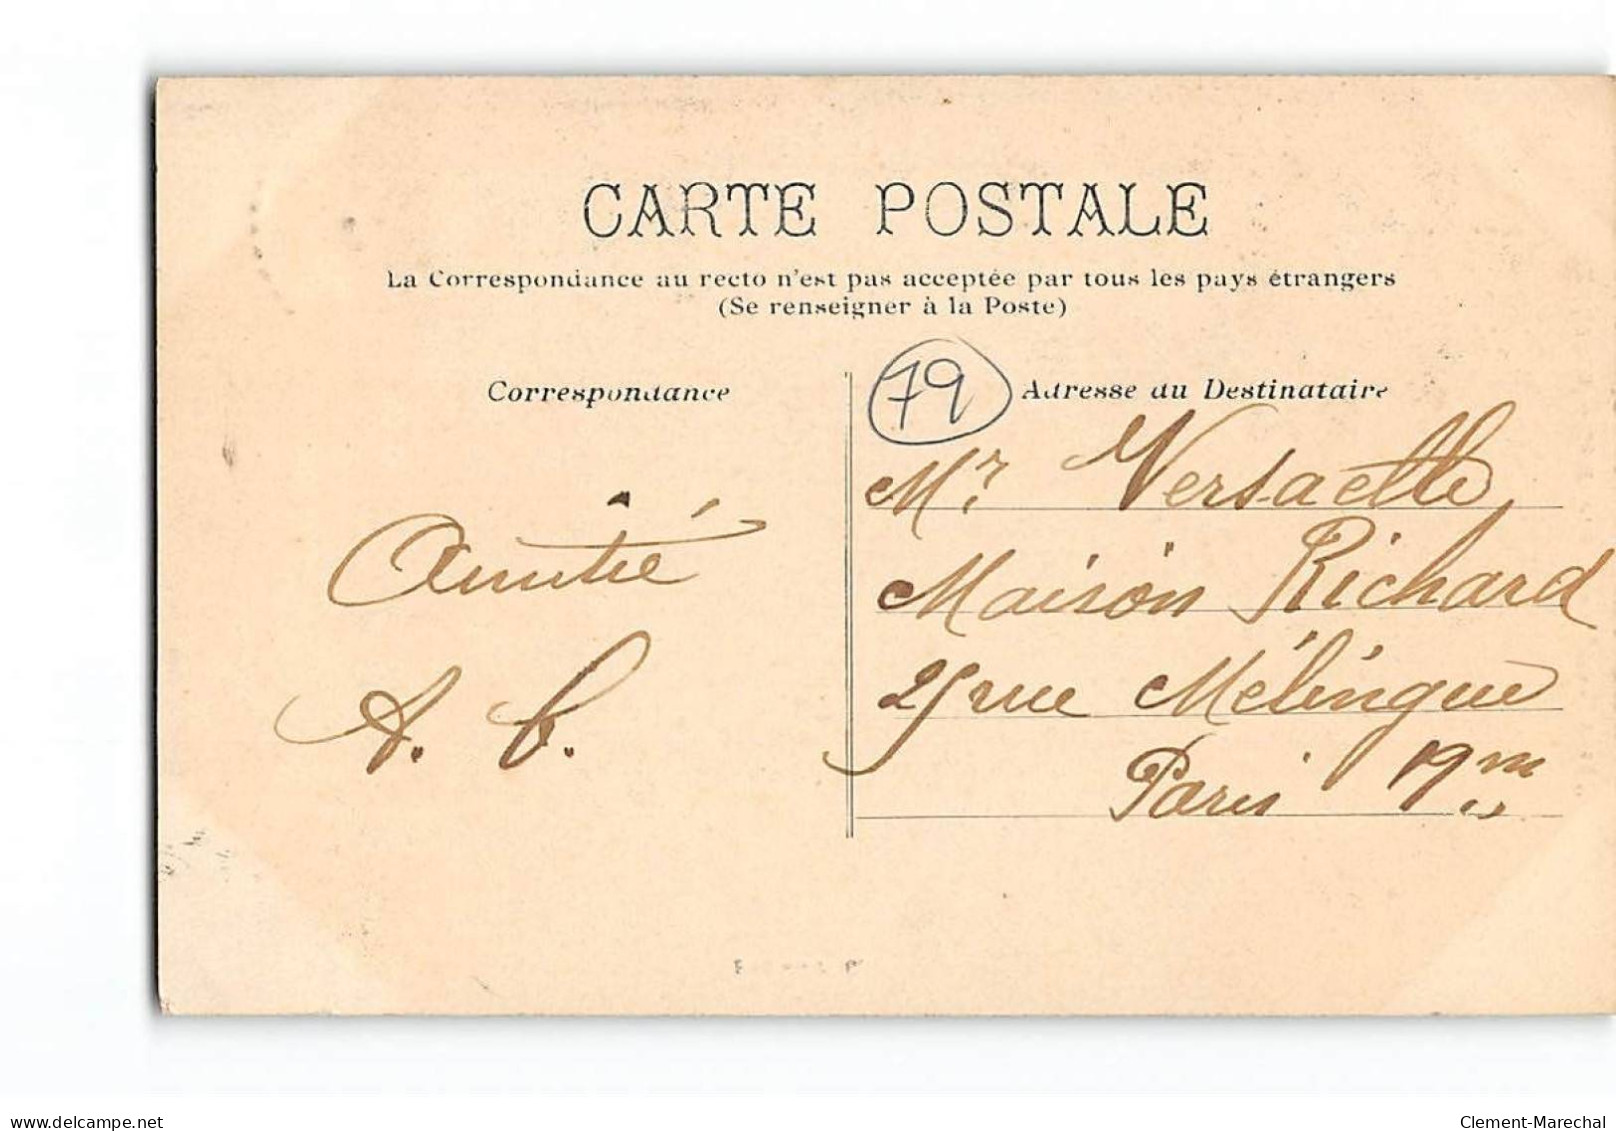 CARTE POSTALE
La Correspondance au recto n'est pas acceptée par tous les pays étrangers
(Se renseigner à la Poste)
Correspondance
79
Adresse du Destinataire
Amitié
A. C.
Mr Versaelle
Maison Richard
25 rue Mélingue
Paris 19me
delcampe.net
Clement-Marechal